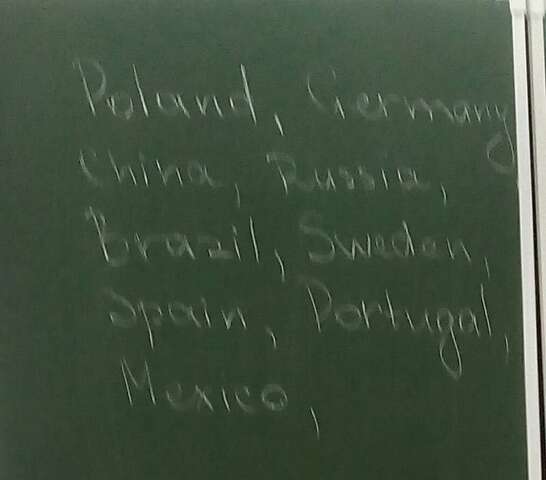 Poland, Germany
China, Russia,
Brazil, Sweden,
Spain, Portugal,
Mexico,